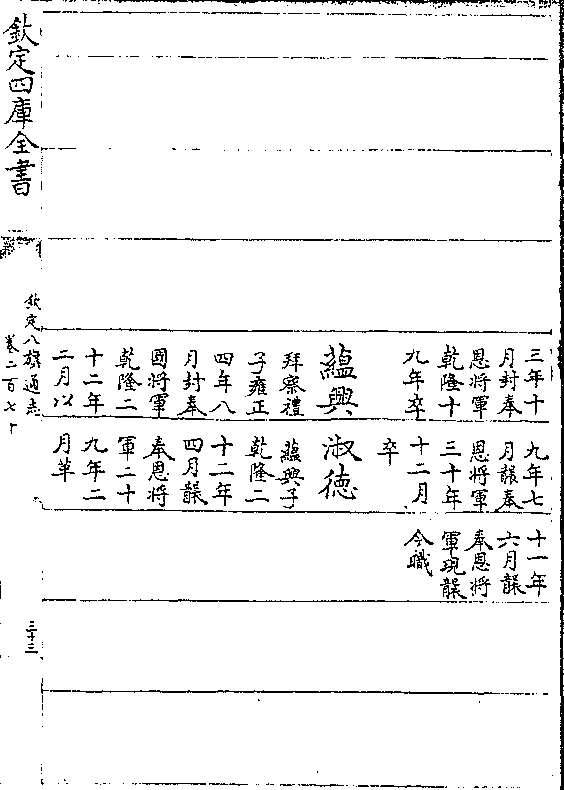 三年十
月封奉
恩將軍
乾隆十
九年卒
蘊興
拜察禮
子雍正
四年八
月封奉
國將軍
乾隆二
十二年
二月以
九年七
月襲奉
恩將軍
三十年
十二月
卒
淑徳
蘊興子
乾隆二
十二年
四月襲
奉恩將
軍二十
九年二
月革
十一年
六月襲
奉恩將
軍現襲
今職
欽定四庫全書
欽定八旗通志
卷二百七十
三十三